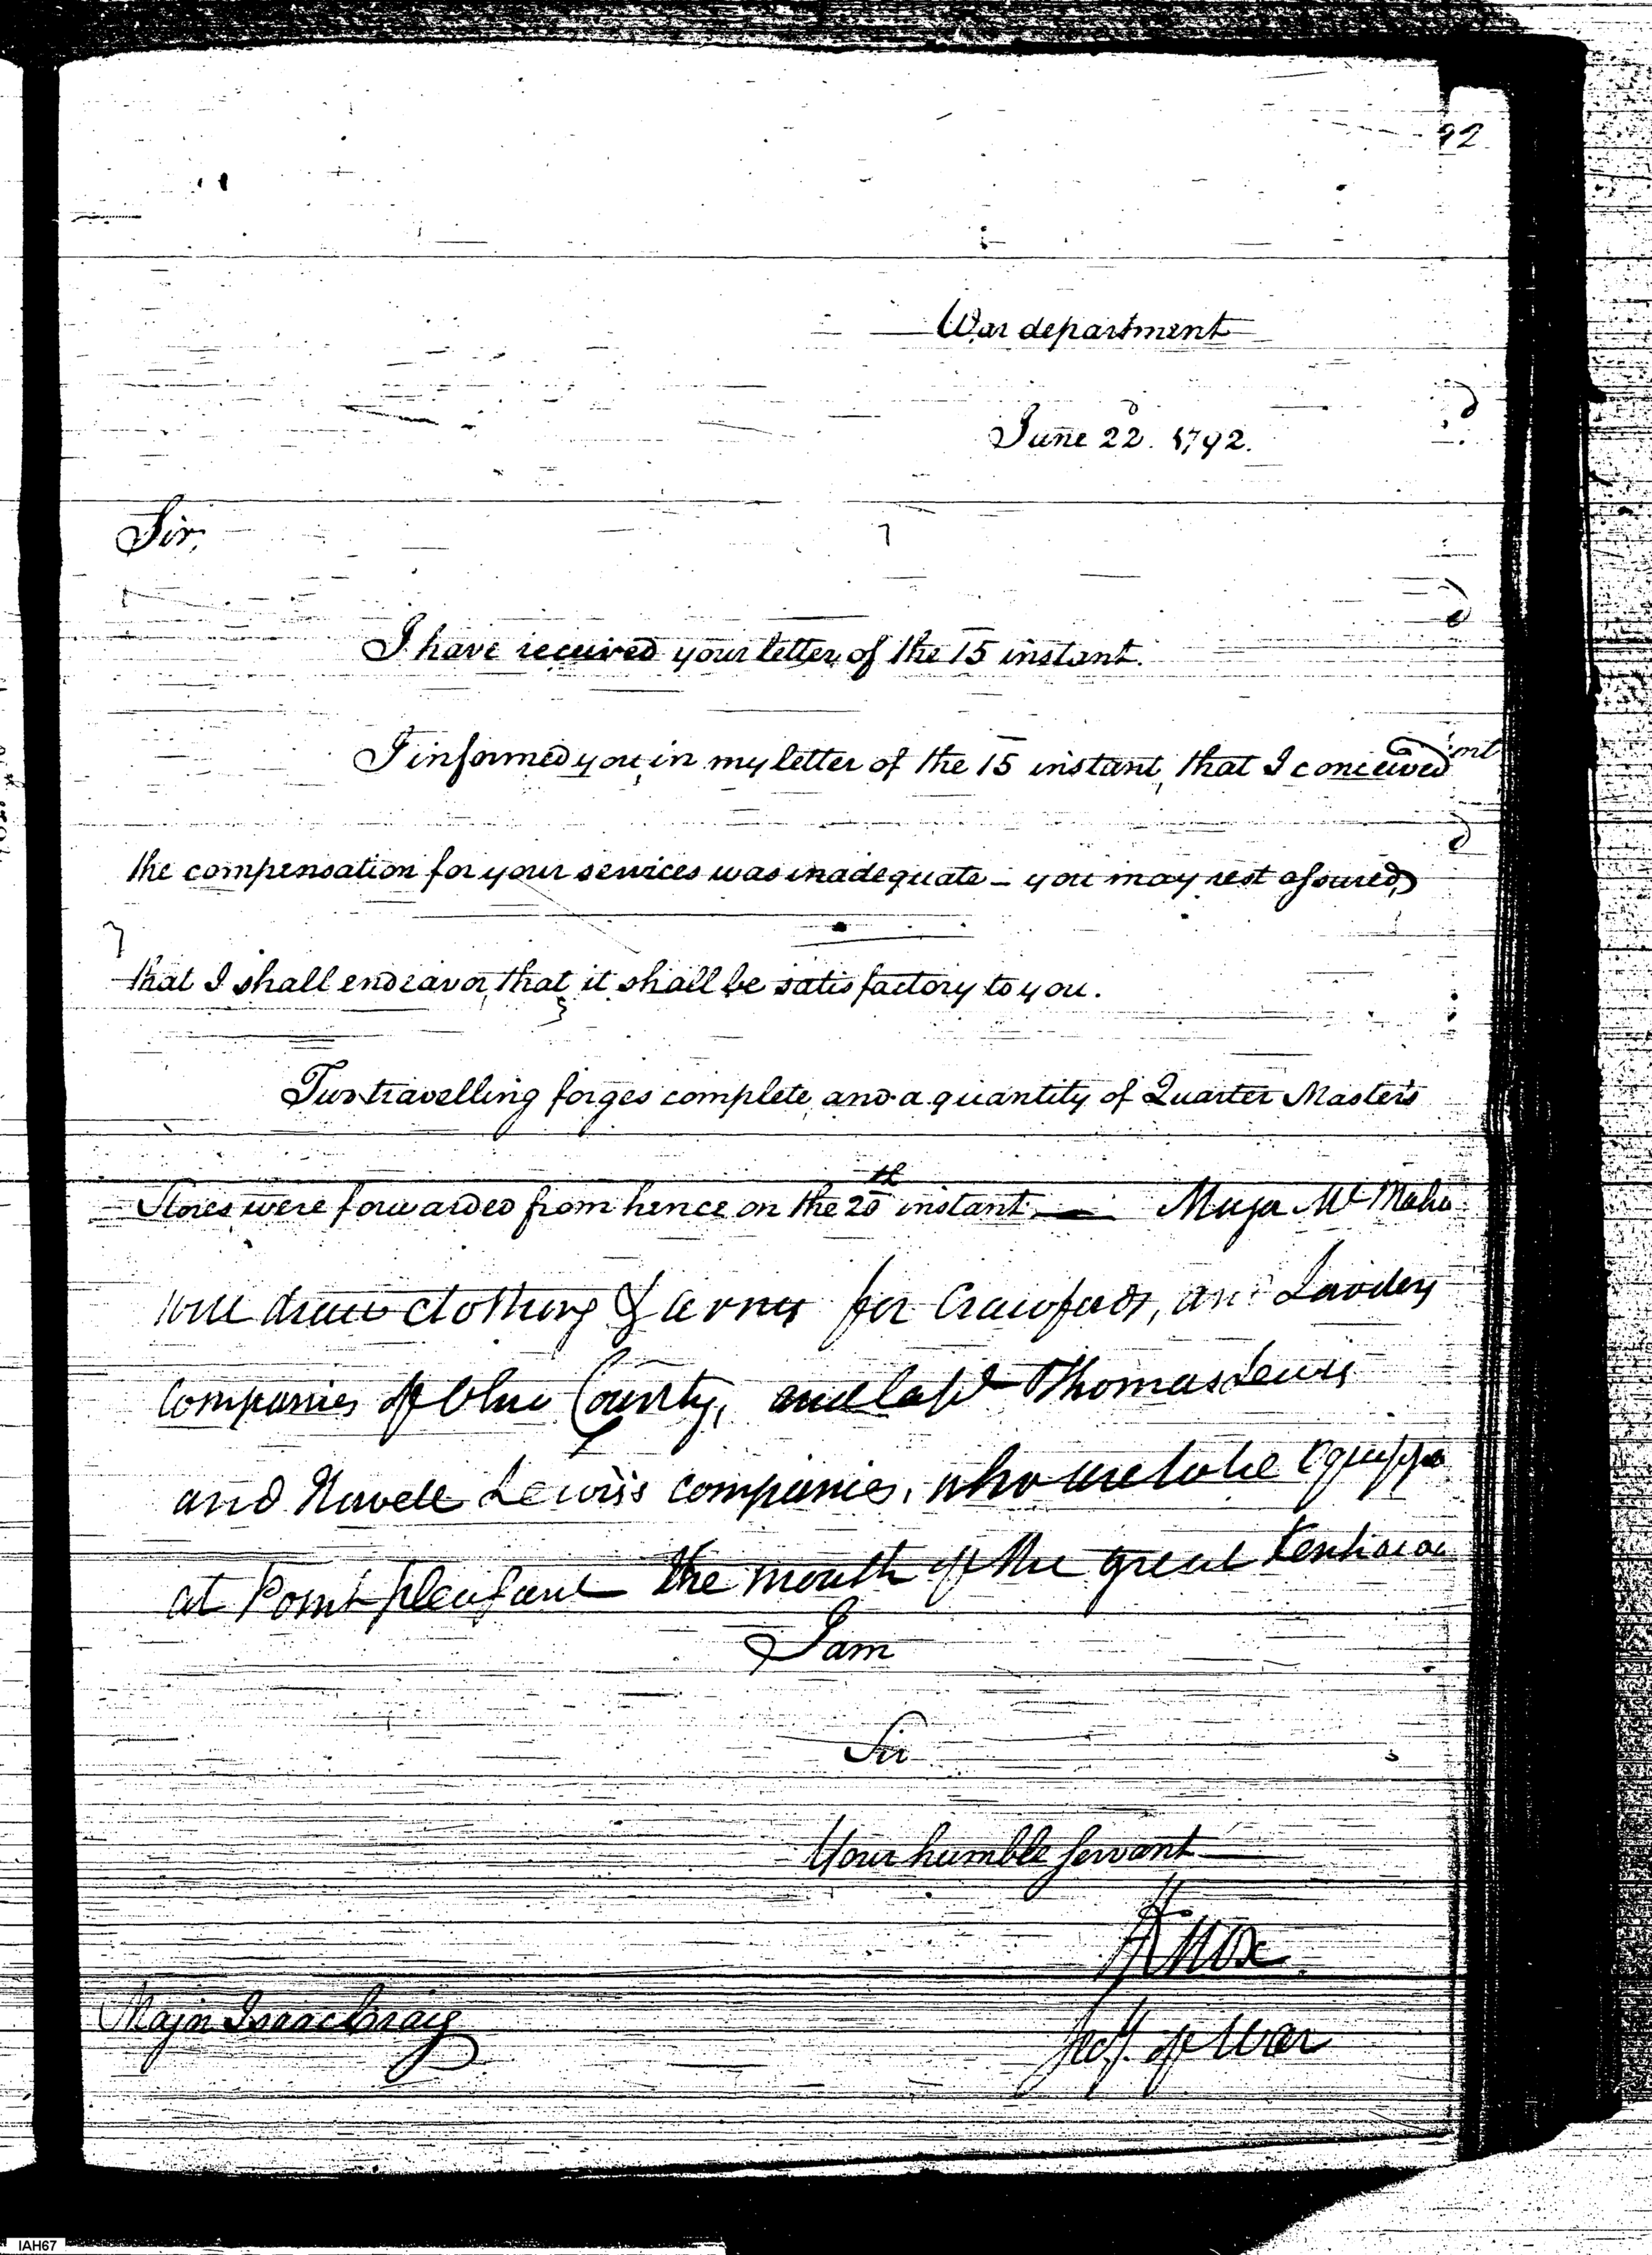 92
War department
June 22d. 1792.
Sir,
I have received your letter of the 15 instant.
I informed you, in my letter of the 15 instant, that I conceived
the compensation for your services was inadequate – you may rest assured,
that I shall endeavor, that it shall be satisfactory to you.
Two travelling forges complete, and a quantity of Quarter Master's
Stores, were forwarded from hence on the 20th instant — Major McMaho
will draw clothing & arms for Crawfords, and
companies of Ohio County, and Capt Thomas Lewis
and Lewis's companies, who are to be equipped
at Point pleasant the mouth of the great Kenhawa
I am
Sir
Your humble servant
HKnox
Secy. of War
Major Isaac Craig
IAH67